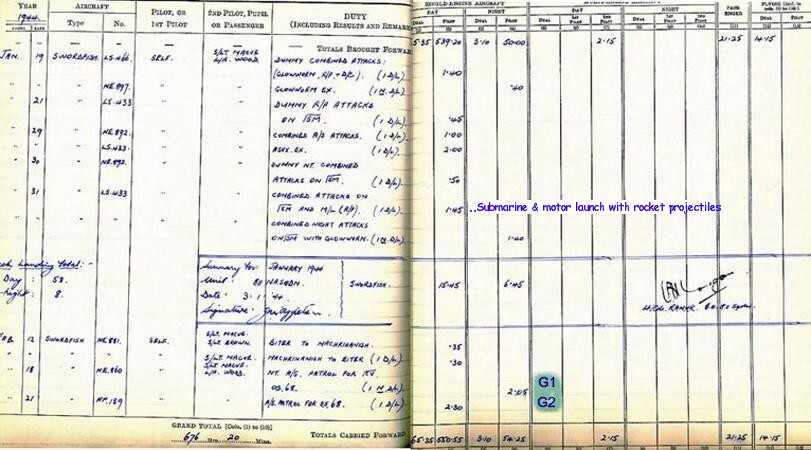 YEAR
1944.
AIRCRAFT
PILOT, OR
1ST PILOT
2ND PILOT, PUPIL
OR PASSENGER
DUTY
(INCLUDING RESULTS AND REMARKS
SINGLE-ENGINE AIRCRAFT
DAY NIGHT
DAY NIGHT
PASS-
ENGER
Type No.
DUAL PILOT DUAL PILOT
TOTALS BROUGHT FORWARD
5.35 539.20 3.10 50.00 2.15 21.25 14.15
JAN. 19 SWORDFISH. LS.466. SELF. S/LT MACVE.
L/A. WOOD.
DUMMY COMBINED ATTACKS:
(GLOWWORM, R/P + D/C). (1 D/L) 1.40
" " NE.897. " GLOWWORM EX. (1 N. D/L) .40
21 LS.433 DUMMY R/P ATTACKS
ON SM. (1 D/L) .45
29 NE.892. COMBINED A/S ATTACKS. (1 D/L) 1.00
LS.433. ASVX. EX. (1 D/L) 2.00
30 NE.892. DUMMY NT. COMBINED
ATTACKS ON SM. (1 D/L) .50
31 LS.433 COMBINED ATTACKS ON
SM AND M/L (R/P). (1 D/L) 1.45 ..Submarine & motor launch with rocket projectiles
COMBINED NIGHT ATTACKS
ON SM WITH GLOWWORM. (1 N D/L) 1.40
Deck Landing Total:-
Day : 58.
Night : 8.
Summary for: JANUARY 1944
Unit: NASQDN.
Date: 3. 1. 44.
Signature:
SWORDFISH. 15.45 6.45
FEB. 12 SWORDFISH NE.881. SELF. S/LT. MACVE.
S/LT BROWN. BITER TO MACHRIHANISH. .35
S/LT. MACVE. MACHRIHANISH TO BITER (1 D/L) .30
18 NE.860 S/LT MACVE.
L/A. WOOD. NT. A/S. PATROL FOR
OS.68. (1 N. D/L) 2.05 G1
21 A/S. PATROL FOR OS.68. (1 D/L) 2.30 G2
GRAND TOTAL [Cols. (1) to (10)]
676 Hrs. 20 Mins.
TOTALS CARRIED FORWARD
65.35 550.55 3.10 54.25 2.15 21.25 14.15